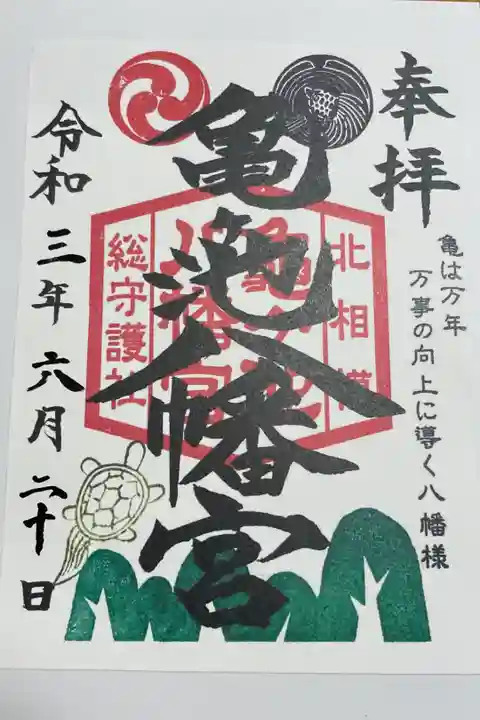 奉拝
亀は万年
万事の向上に導く八幡様
亀池八幡宮
北相模
総守護社
令和三年六月二十日